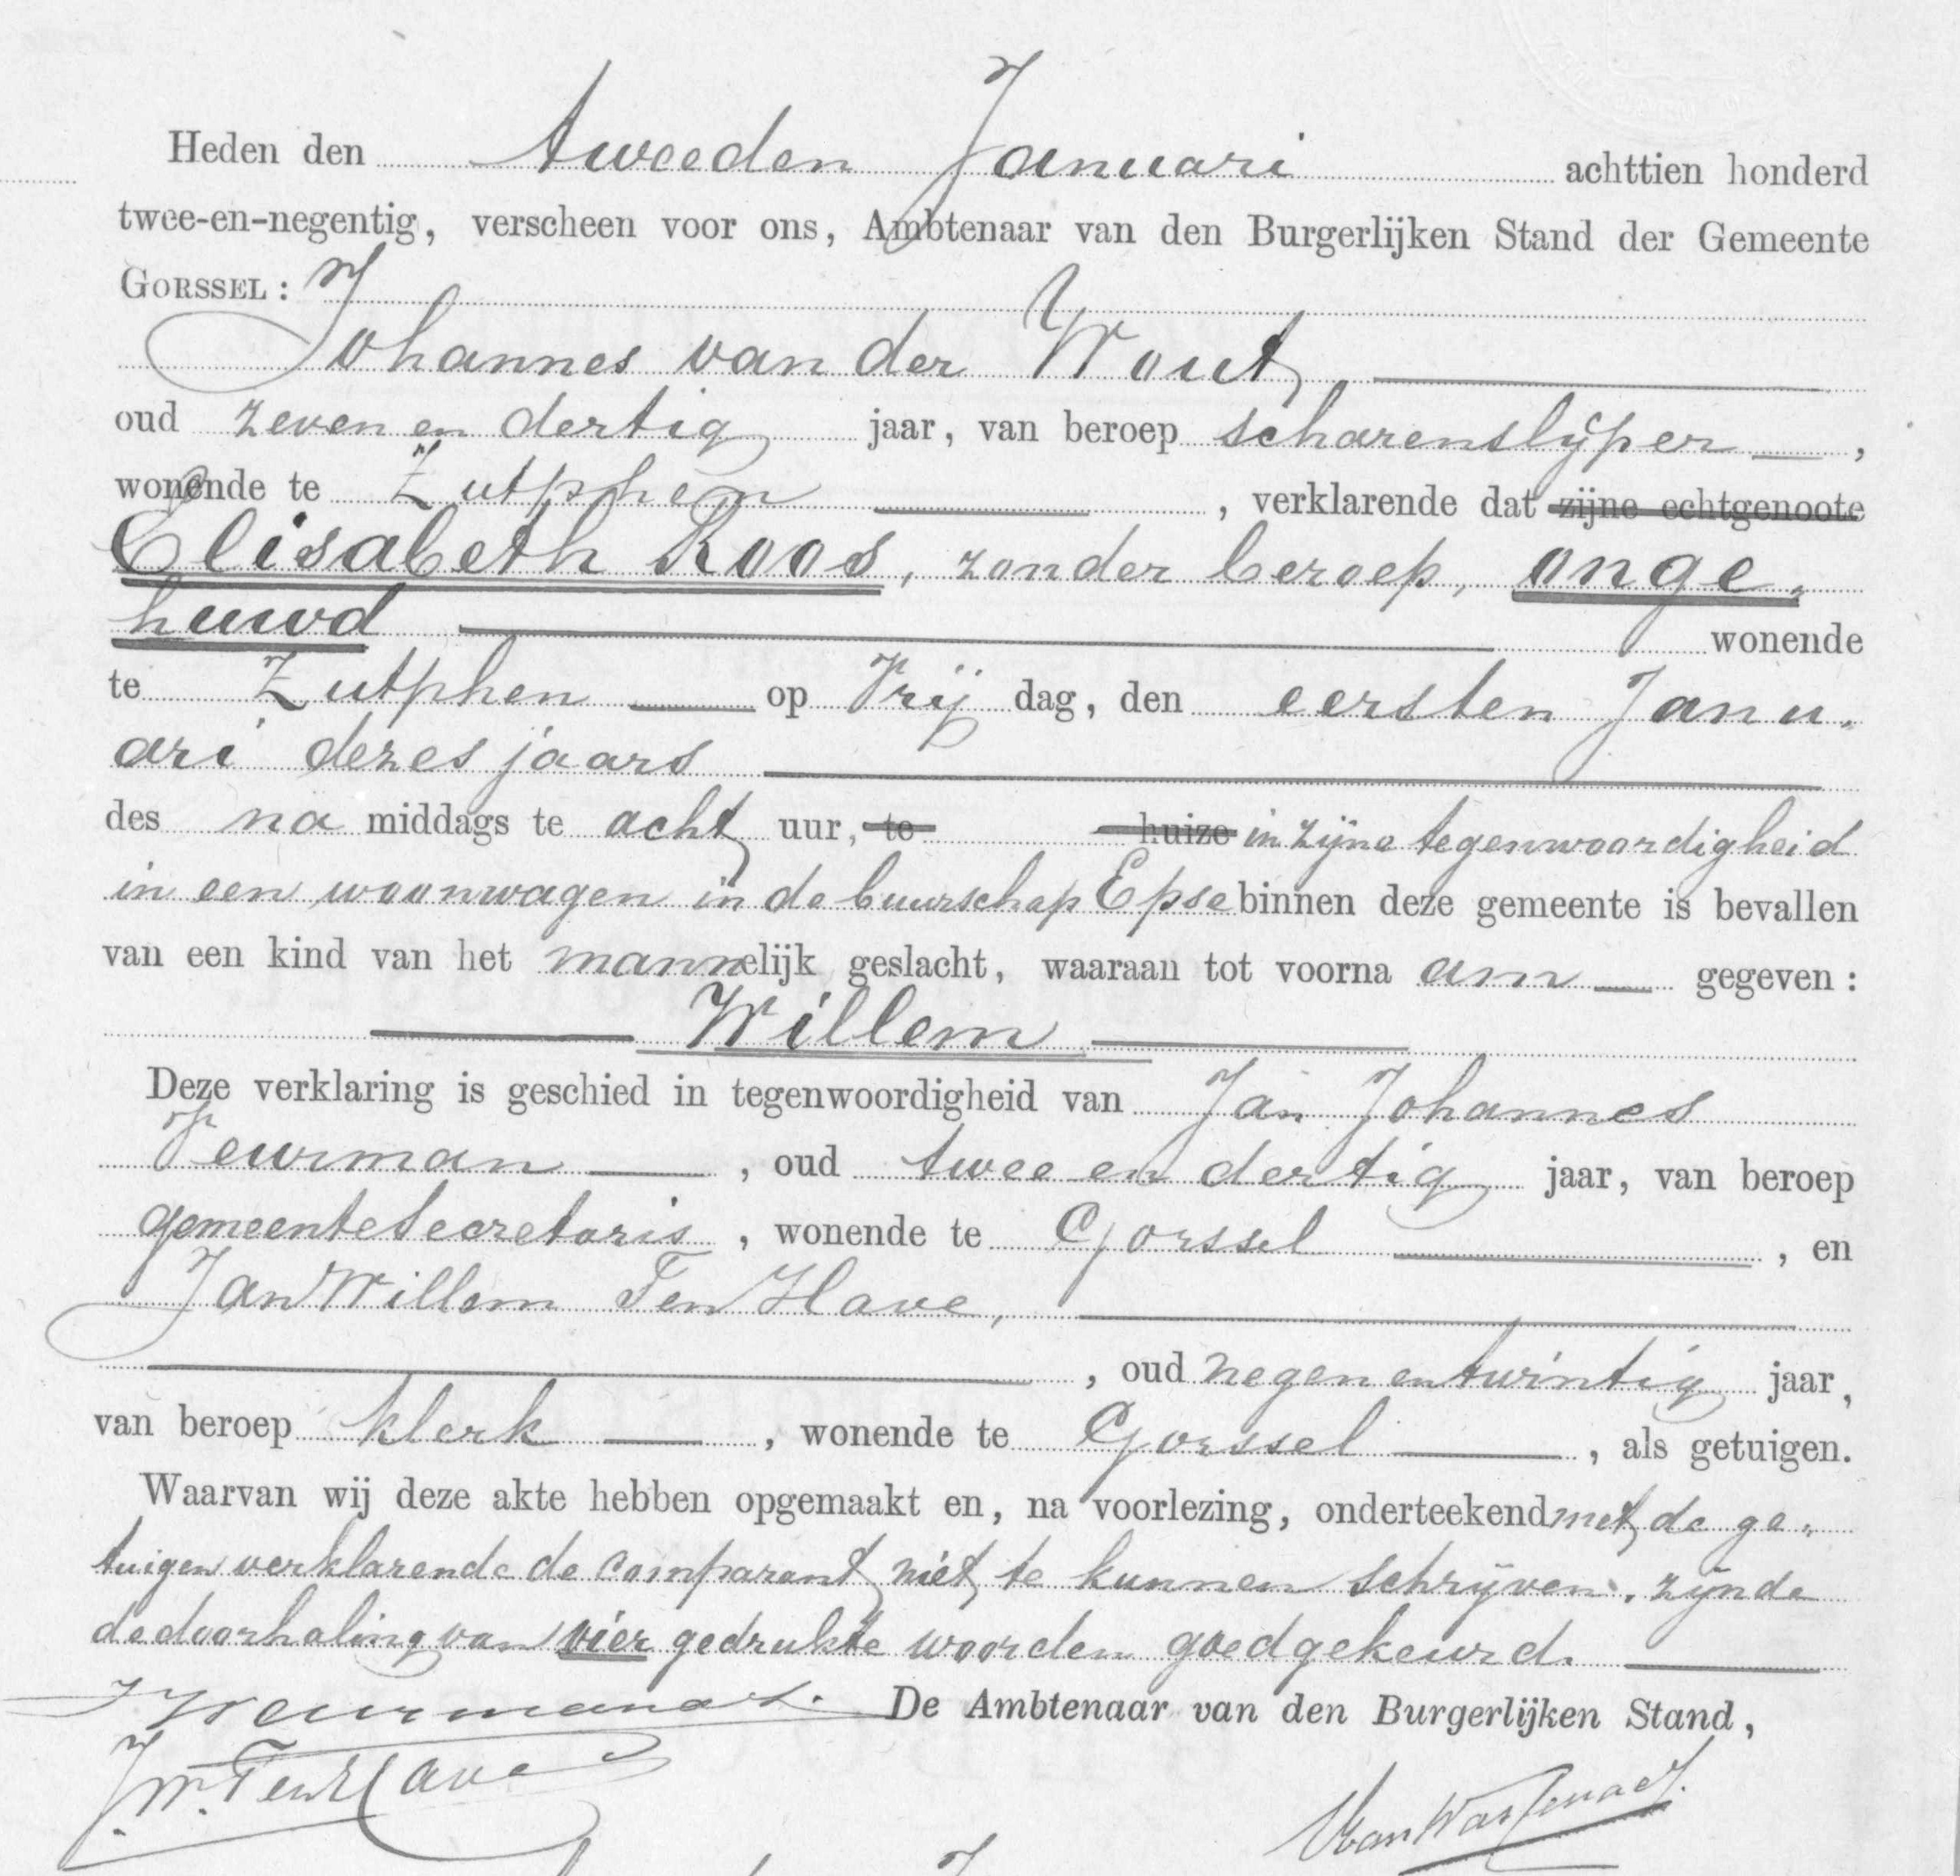 Heden den tweeden Januari achttien honderd
twee-en-negentig, verscheen voor ons, Ambtenaar van den Burgerlijken Stand der Gemeente
GORSSEL:
Johannes van der Wout,
oud zeven en dertig jaar, van beroep scharenslijper,
wonende te Zutphen, verklarende dat zijne echtgenoote
Elisabeth Roos, zonder beroep, onge-
huwd wonende
te Zutphen op Vrij dag, den eersten Janu-
ari dezes jaars
des na middags te acht uur, te huize in zijne tegenwoordigheid
in een woonwagen in de buurschap Epse binnen deze gemeente is bevallen
van een kind van het mannelijk geslacht, waaraan tot voorna am gegeven:
Willem
Deze verklaring is geschied in tegenwoordigheid van Jan Johannes
, oud twee en dertig jaar, van beroep
gemeentesecretaris, wonende te Gorssel, en
Jan Willem Ten Have,
, oud negen en twintig jaar,
van beroep klerk, wonende te Gorssel, als getuigen.
Waarvan wij deze akte hebben opgemaakt en, na voorlezing, onderteekend met de ge-
tuigen verklarende de comparant niet te kunnen schrijven. zijnde
de doorhaling van vier gedrukte woorden goedgekeurd.
De Ambtenaar van den Burgerlijken Stand,
JW. Ten Have